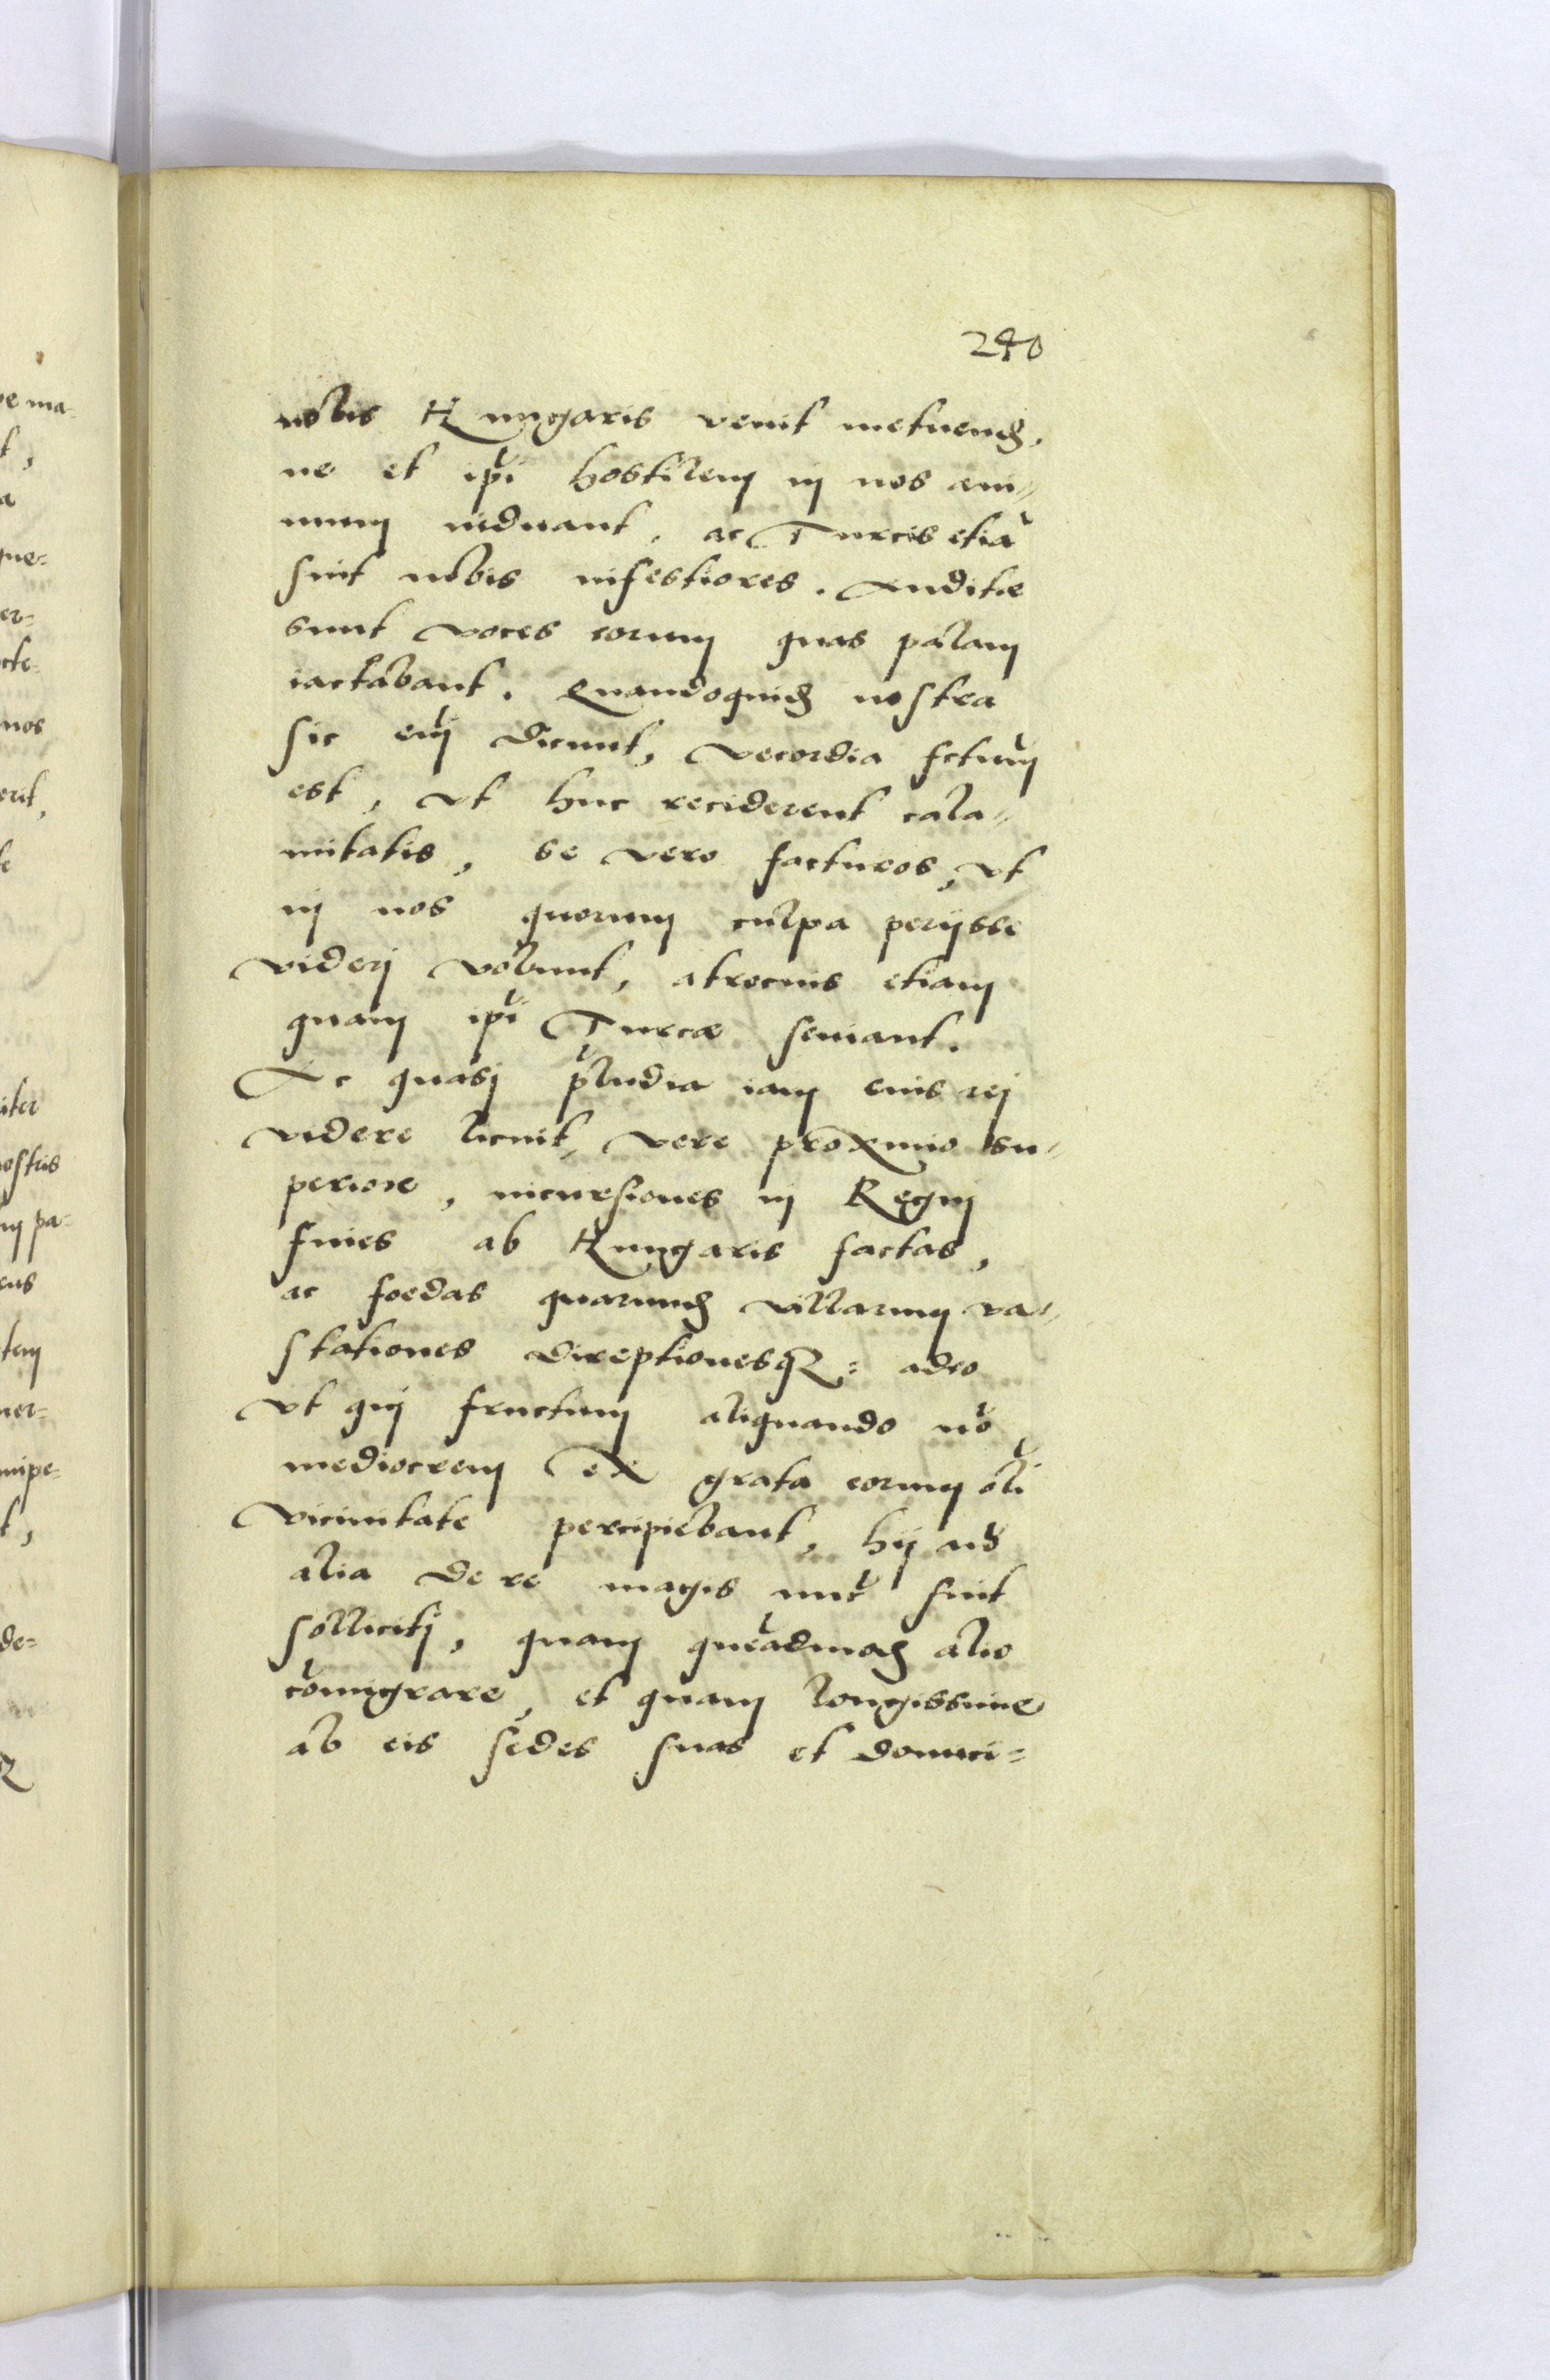 240
nobis Hungaris venit metuend,
ne et ipi hostilem in nos ani-
mum induant, ac Turcis etia
sint nobis infestiores. Auditæ
sunt voces eorum quas palam
iactabant. Quandoquid nostra
sic eni dicunt, vecordia fctum
est, vt huc reciderent cala-
mitatis, se vero facturos, vt
in nos quorum culpa perijsse
viderj volunt, atrocius etiam
quam ipi Turcæ seuiant.
Ac quasj pludia iam eius rej
videre licuit, vere proximo su-
periore, incursiones in Regnj
fines ab Hungaris factas,
ac foedas quarund villarum va-
stationes direptionesq: adeo
vt quj fructum aliquando no
mediocrem ex grata eorum oli
vicinitate percipiebant, hij nō
alia de re magis nuc sint
sollicitj, quam queadmod alio
comigrare, et quam longissime
ab eis sedes suas et domici=
pe ma-
t,
a
que=
er=
cte-
nos
erit,
le
iter
ostris
m pa=
eus
tem
ner-
nipe=
t,
de=